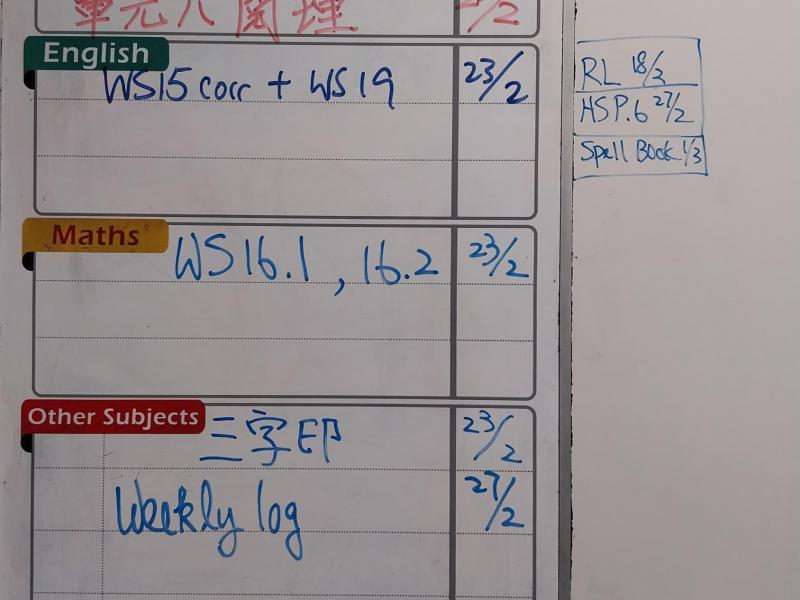 單元八 閱理 /2
English
WS15 corr + WS19 23/2
Maths
WS16.1, 16.2 23/2
Other Subjects
三字印 23/2
Weekly log 27/2
RL 18/3
HSP.6 27/2
Spell Book 1/3